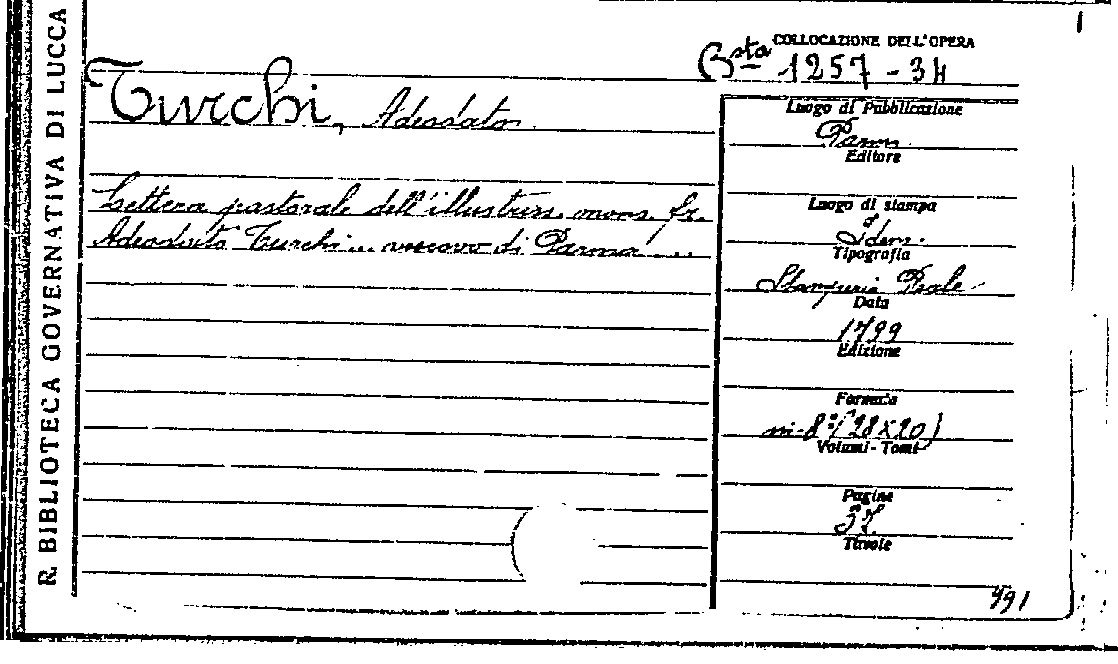 R. BIBLIOTECA GOVERNATIVA DI LUCCA
COLLOCAZIONE DELL'OPERA
Bsta 1257 - 34
Turchi, Adeodato
Lettera pastorale dell'illustriss. mons. fr.
Adeodato Turchi ... vescovo di Parma ...
Luogo di Pubblicazione
Parma
Editore
Luogo di stampa
Idem.
Tipografia
Stamperia Reale
Data
1799
Edizione
Formato
in-8º (28x20)
Volumi - Tomi
Pagine
Tavole